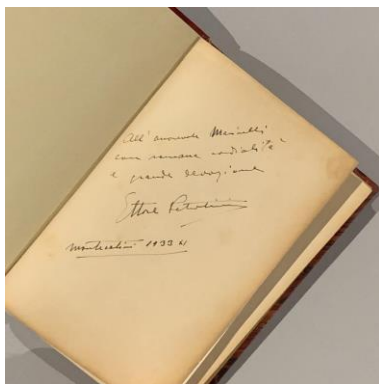 All'onorevole Marinelli
con romana cordialità
e grande devozione
Ettore Petrolini
Montecatini 1933 XI